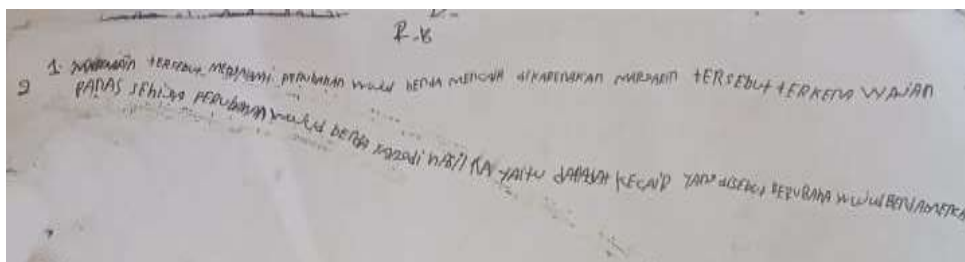 R.B
1. MARGARIN tERSEbut MENgAlAMi PERUbAHAN WUJUd bENdA MENCAIR diKARENAKAN MARGARIN tERSEbut tERKENA WAJAN
2 PANAS SEhiNgA PERUbAHAN WUJUd bENdA tERJAdi HASIl NYA YAItU dARi PAdAt KE CAIR YANg diSEbut PERUBAHA WUJUd BENdA